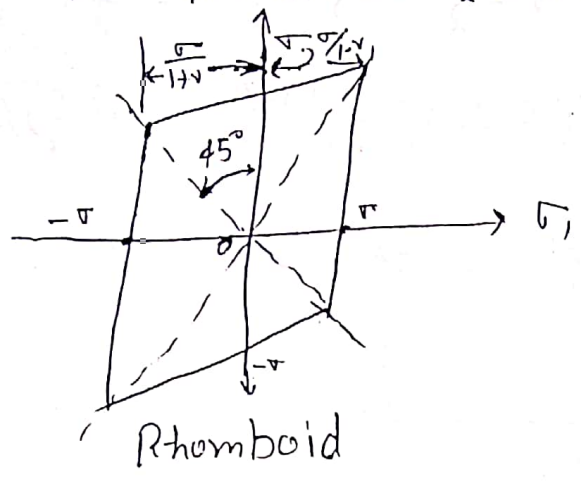 σ/1+ν
σ
σ/1-ν
45°
-σ
σ
σ₁
0
-σ
Rhomboid